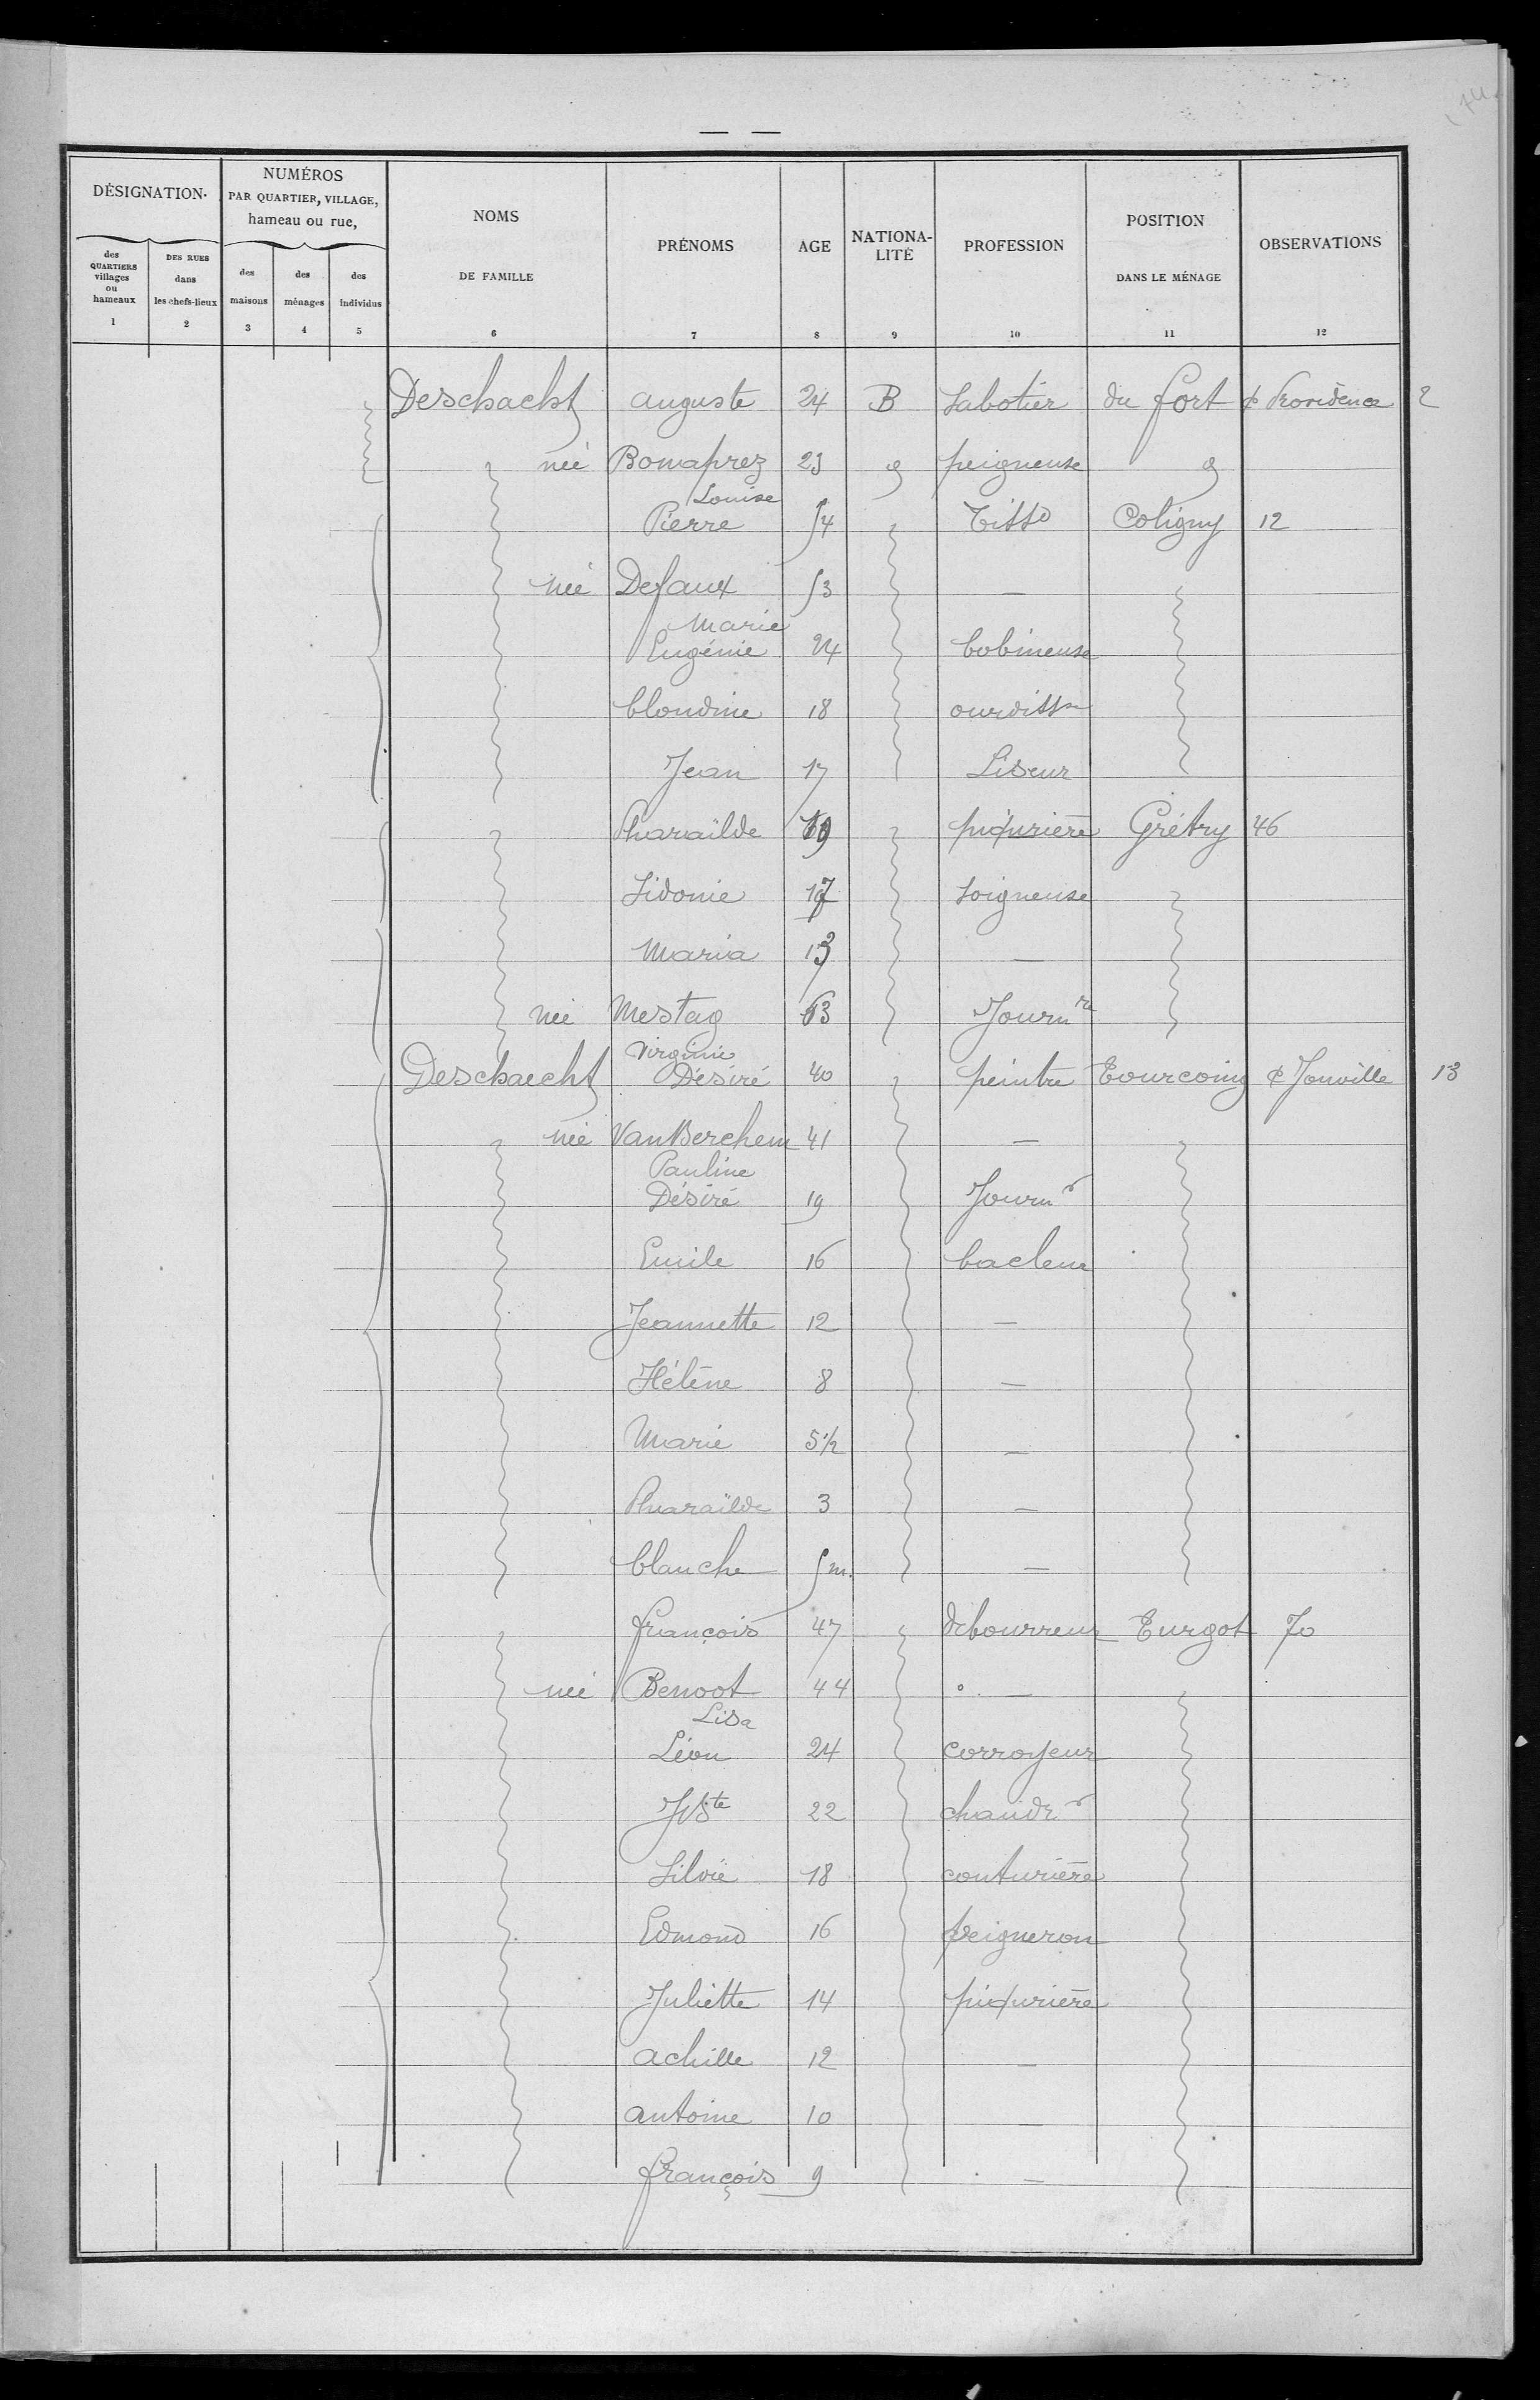 DÉSIGNATION.
NUMÉROS
PAR QUARTIER, VILLAGE,
hameau ou rue,
NOMS
DE FAMILLE
PRÉNOMS
AGE
NATIONA-
LITÉ
PROFESSION
POSITION
DANS LE MÉNAGE
OBSERVATIONS
des
QUARTIERS
villages
ou
hameaux
DES RUES
dans
les chefs-lieux
des
maisons
des
ménages
des
individus
1 2 3 4 5 6 7 8 9 10 11 12
Deschacht auguste 24 B Sabotier du fort Providence 2
née Bomaprez 23 peigneuse
Louise
Pierre 54 Tissd Coligny 12
née Defaux 53 —
Marie
Eugénie 24 bobineuse
Clondine 18 ourdisse
Jean 17 Liseur
Pharaïlde 19 piqurière Grétry 46
Sidonie 17 Soigneuse
Maria 13 —
née Mestag 63 Journre
Virginie
Deschaecht Désiré 40 peintre Tourcoing Jonville 13
née VanBerchem 41 —
Pauline
Désiré 19 Journr
Emile 16 bacleur
Jeannette 12 —
Hélène 8 —
Marie 5 1/2 —
Pharaïlde 3 —
blanche 5 m. —
françois 47 debourreur Turgot 70
née Benoot 44 —
Lisa
Léon 24 corroyeur
JBte 22 chaudr
Silvie 18 couturière
Edmond 16 peigneron
Juliette 14 piqurière
achille 12 —
antoine 10 —
françois 9 —